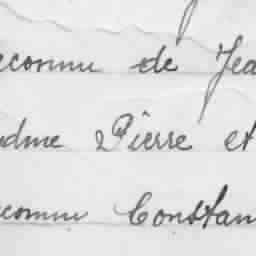 econnu de Jea
dme Pierre et
econnu Constan